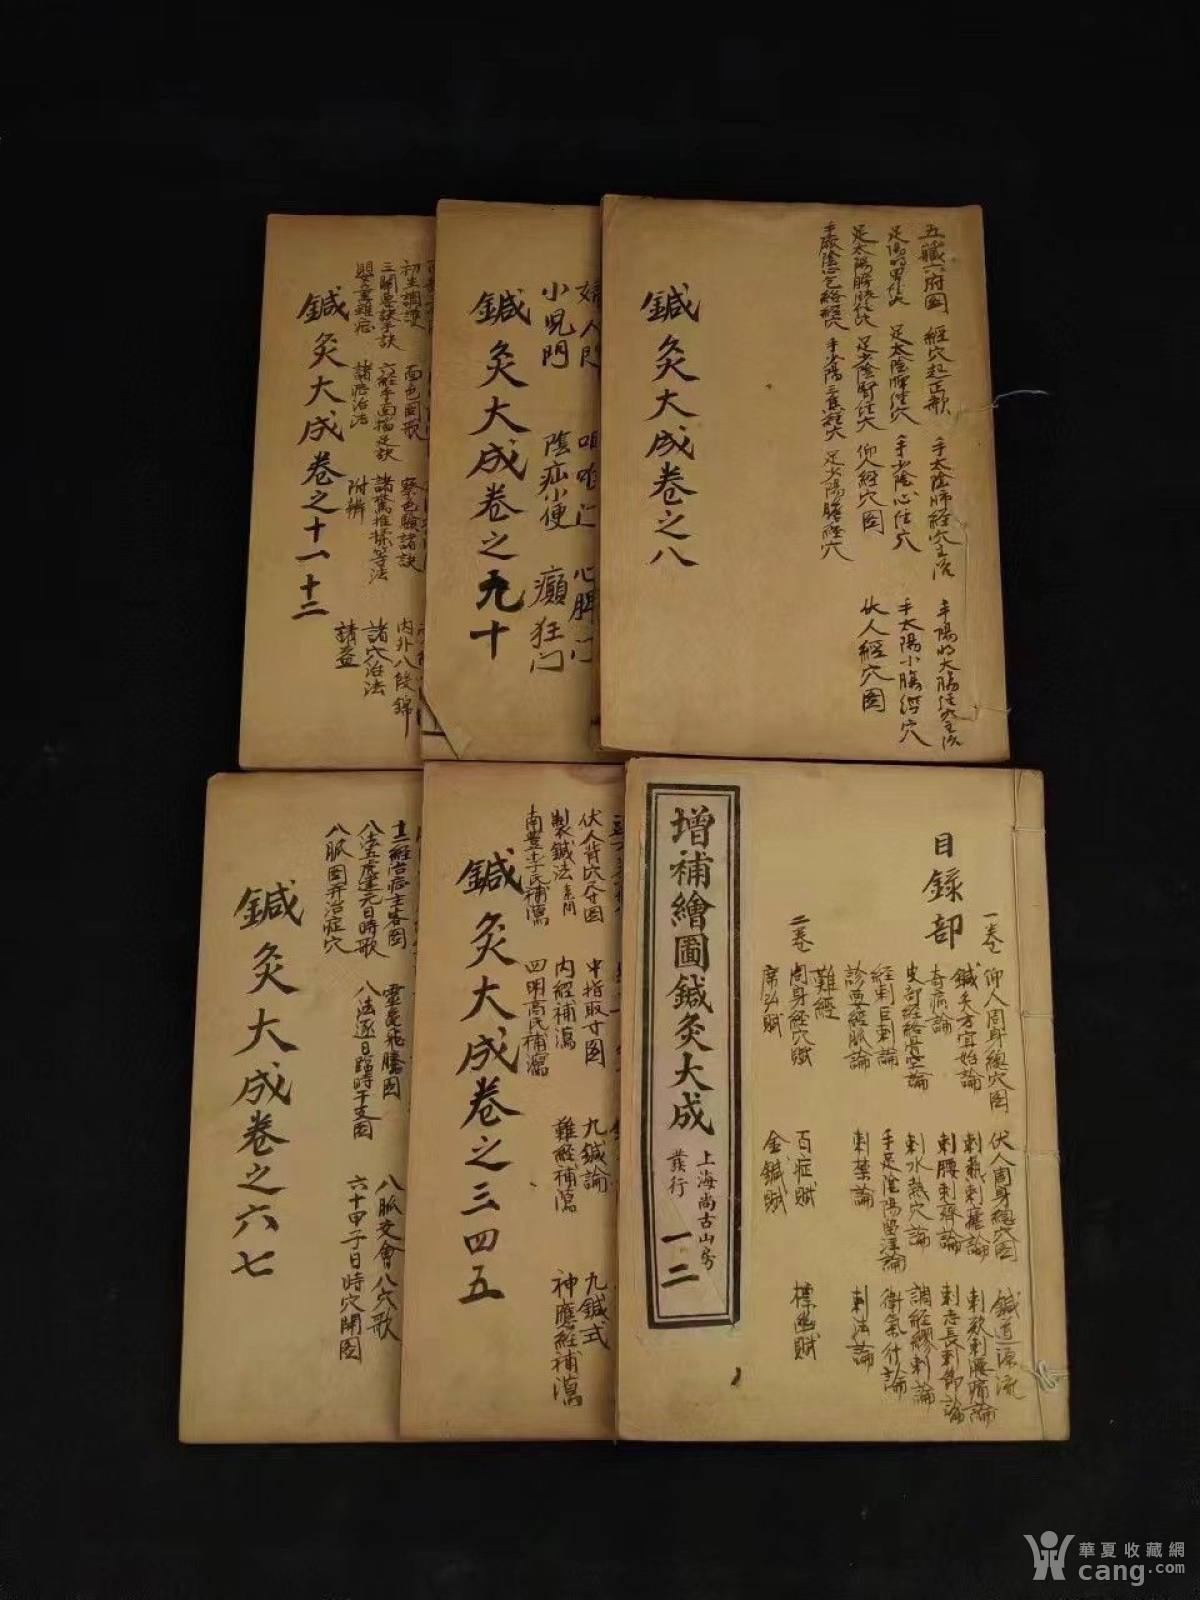 五臟六府圖 經穴起止歌 手太陰肺經穴主治 手陽明大腸經穴主治
足陽明胃經穴 足太陰脾經穴 手少陰心經穴 手太陽小腸經穴
足太陽膀胱經穴 足少陰腎經穴 仰人經穴圖 伏人經穴圖
手厥陰心包絡經穴 手少陽三焦經穴 足少陽膽經穴
鍼灸大成卷之八
婦人門 咽喉门 心脾门
小児門 陰疝小便 癲狂门
鍼灸大成卷之九十
初生調護 面色圖歌 察色驗諸訣 内外八段錦
三關要訣手訣 六經手面描足訣 諸驚推揉等法 諸穴治法
嬰童雜症 諸症治法 附辨 請益
鍼灸大成卷之十一十二
目錄部
一卷 仰人周身總穴圖 伏人周身總穴圖 鍼道源流
鍼灸方宜始論 刺熱刺瘧論 刺欬刺腰痛論
奇病論 刺腰刺齊論 刺志長刺節論
皮部經絡骨空論 刺水熱穴論 調經繆刺論
經刺巨刺論 手足陰陽留淺論 衛氣行論
診要經脈論 刺禁論 刺法論
難經
二卷 周身經穴賦 百症賦 標幽賦
席弘賦 金鍼賦
增補繪圖鍼灸大成 上海尚古山房發行 一二
伏人背穴尺寸圖 中指取寸圖 九鍼論 九鍼式
製鍼法 素問 内經補瀉 難經補瀉 神應經補瀉
南豐李氏補瀉 四明高氏補瀉
鍼灸大成卷之三四五
十二經治症主客圖 靈龜飛騰圖 八脈交會八穴歌
八法五虎建元日時歌 八法逐日臨時干支圖 六十甲子日時穴開圖
八脈圖并治症穴
鍼灸大成卷之六七
華夏收藏網
cang.com